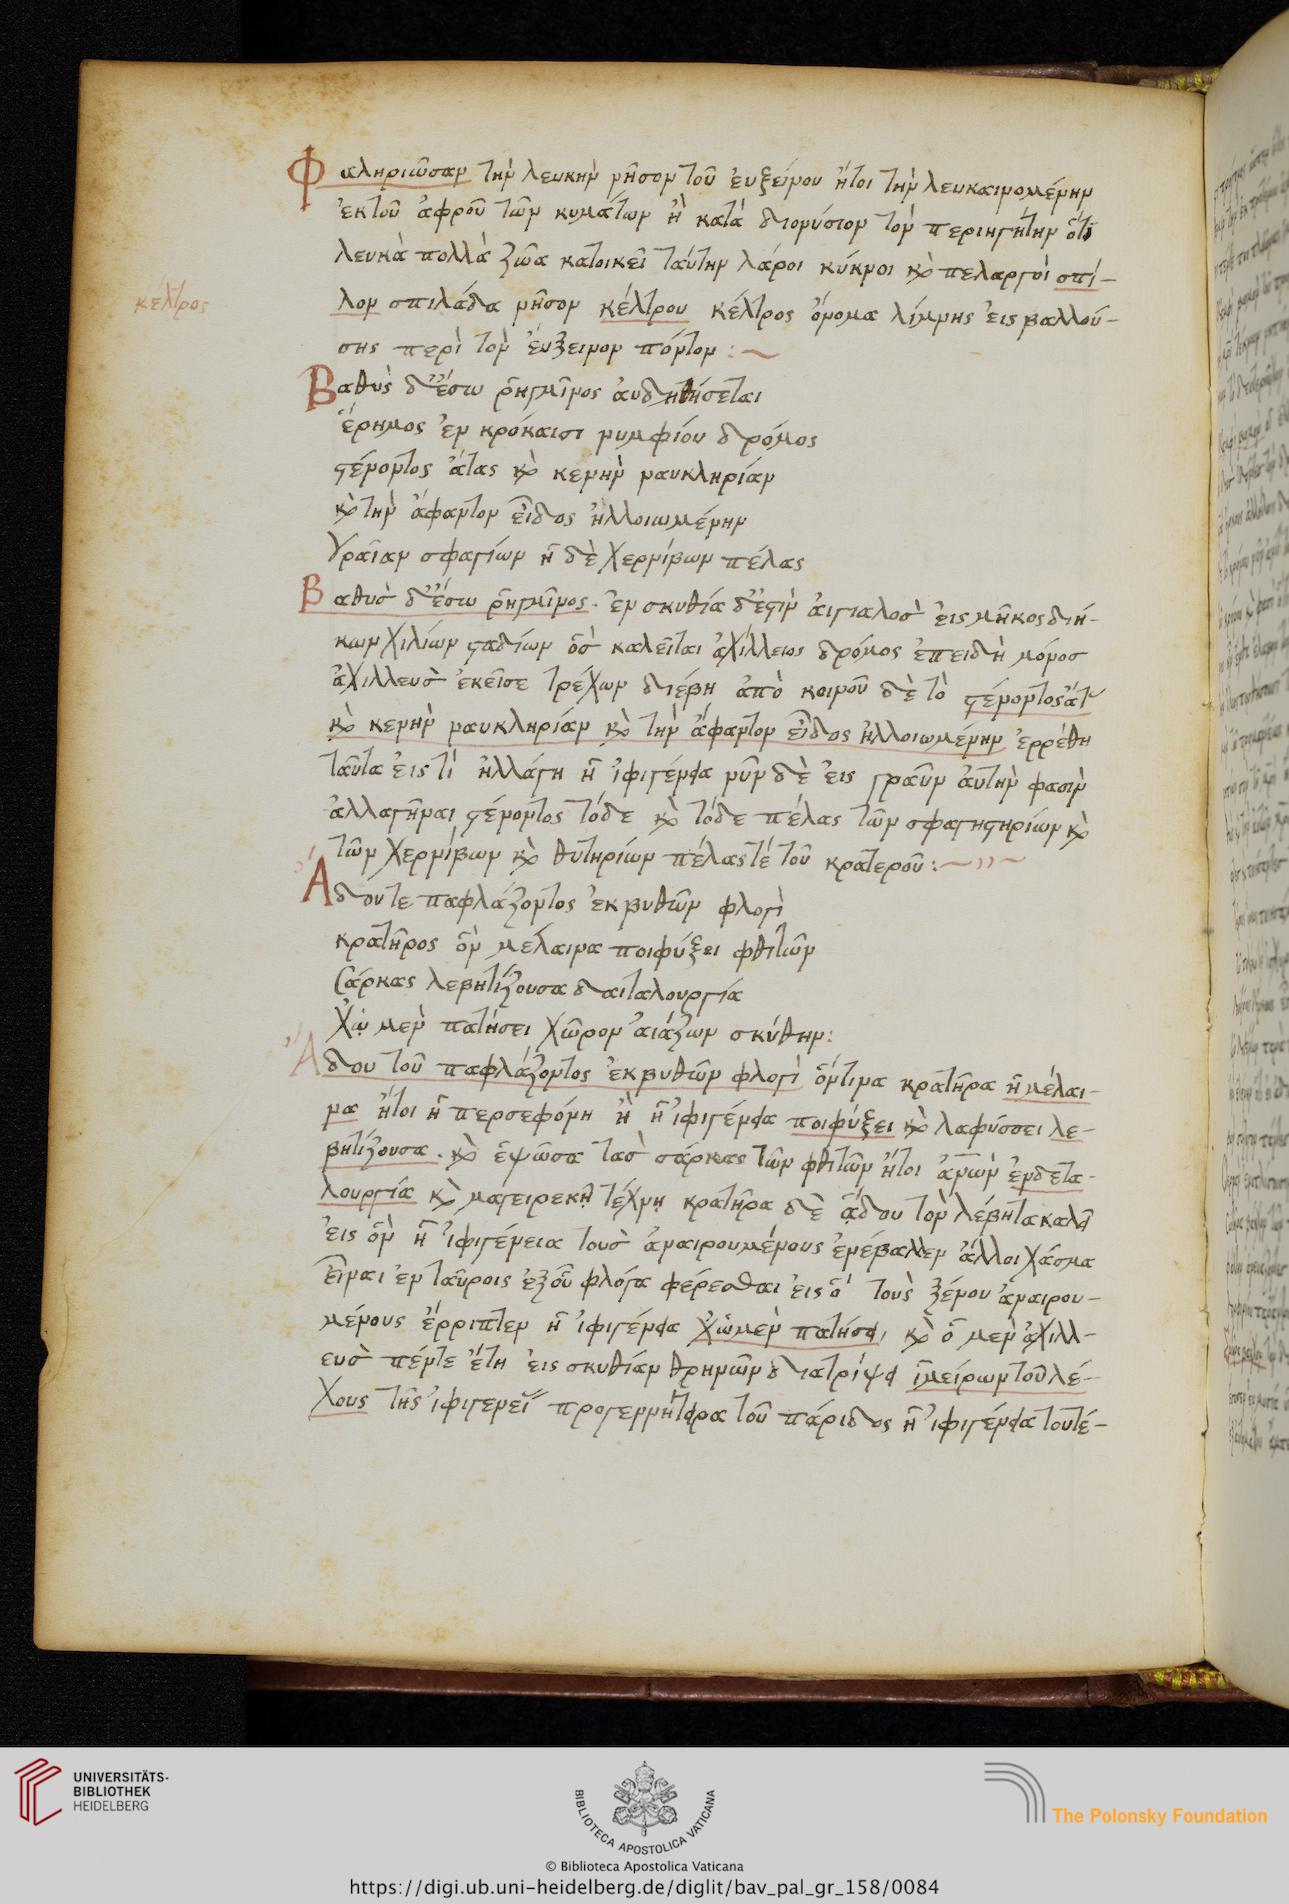 Φαληριῶσαν τὴν λευκὴν νῆσον τοῦ ἐυξείνου ἤτοι τὴν λευκαινομένην
ἐκτοῦ ἀφροῦ τῶν κυμάτων ἢ κατὰ διονύσιον τὸν περιηγήτην ὅτι
λευκὰ πολλὰ ζῶα κατοικεῖ ταύτην λάροι κύκνοι καὶ πελαργοί σπί-
λον σπιλάδα νῆσον κέλτρου κέλτρος ὄνομα λίμνης ἐις βαλλού-
κέλτρος
σης περὶ τὸν ἐύξεινον πόντον :~
Βαθὺς δ' ἔσω ῥηγμῖνος ἀυδηθήσεται
ἔρημος ἐν κρόκαισι νυμφίου δρόμος
στένοντος ἄτας καὶ κενὴν ναυκληρίαν
καὶ τὴν ἄφαντον εἶδος ἠλλοιωμένην
Γραῖαν σφαγίων ἢ δὲ χερνίβων πέλας
Βαθὺσ δ' ἔσω ῥηγμῖνος . ἐν σκυθία δ' ἐστὶν ἀιγιαλὸσ ἐις μῆκος διή-
κων χιλίων σταδίων ὃσ καλεῖται ἀχίλλειος δρόμος ἐπειδὴ μόνοσ
ἀχιλλεὺσ ἐκεῖσε τρέχων διέβη ἀπὸ κοινοῦ δὲ τὸ στένοντος ἄτ
καὶ κενὴν ναυκληρίαν καὶ τὴν ἄφαντον εἶδος ἠλλοιωμένην ἐρρέθη
ταῦτα ἐις τί ἠλλάγη ἡ ἰφιγένεια νῦν δὲ ἐις γραῦν ἀυτὴν φασὶν
ἀλλαγῆναι στένοντος τόδε καὶ τόδε πέλας τῶν σφαγηστηρίων καὶ
τῶν χερνίβων καὶ θυτηρίων πέλας τέ τοῦ κρατερου :~
Ἄδου τε παφλάζοντος ἐκ βυθῶν φλογὶ
κρατῆρος ὃν μέλαινα ποιφύξει φθιτῶν
Σάρκας λεβητίζουσα δαιταλουργία
Χὠ μὲν πατήσει χῶρον ἀιάζων σκύθην :
Ἄδου τοῦ παφλάζοντος ἐκ βυθῶν φλογὶ ὅντινα κρατῆρα ἡ μέλαι-
να ἤτοι ἡ περσεφόνη ἢ ἡ ἰφιγένεια ποιφύξει καὶ λαφύσσει λε-
βητίζουσα . καὶ ἑψῶσα τὰσ σάρκας τῶν φθιτῶν ἤτοι ἀνῶν ἐνδετα-
λουργία καὶ μαγειρεκῆ τέχνη κρατῆρα δὲ ἅδου τὸν λέβητα καλεῖ
ἐις ὃν ἡ ἰφιγένεια τοὺσ ἀναιρουμένους ἐνέβαλλεν ἄλλοι χάσμα
εἶναι ἐν ταύροις ἐξ οὗ φλόγα φέρεσθαι ἐις ὃ τοὺς ξένου ἀναιρου-
μένους ἔρριπτεν ἡ ἰφιγένεια χὠ μὲν πατήσει, καὶ ὁ μὲν ἀχιλλ-
ευσ πέντε ἔτη ἐις σκυθίαν θρηνῶν διατρίψει ἱμείρων τοῦ λέ-
χους τῆς ἰφιγενεί προγεννήτειρα τοῦ πάριδος ἡ ἰφιγένεια τουτέ-
UNIVERSITÄTS-
BIBLIOTHEK
HEIDELBERG
BIBLIOTECA APOSTOLICA VATICANA
The Polonsky Foundation
© Biblioteca Apostolica Vaticana
https://digi.ub.uni-heidelberg.de/diglit/bav_pal_gr_158/0084